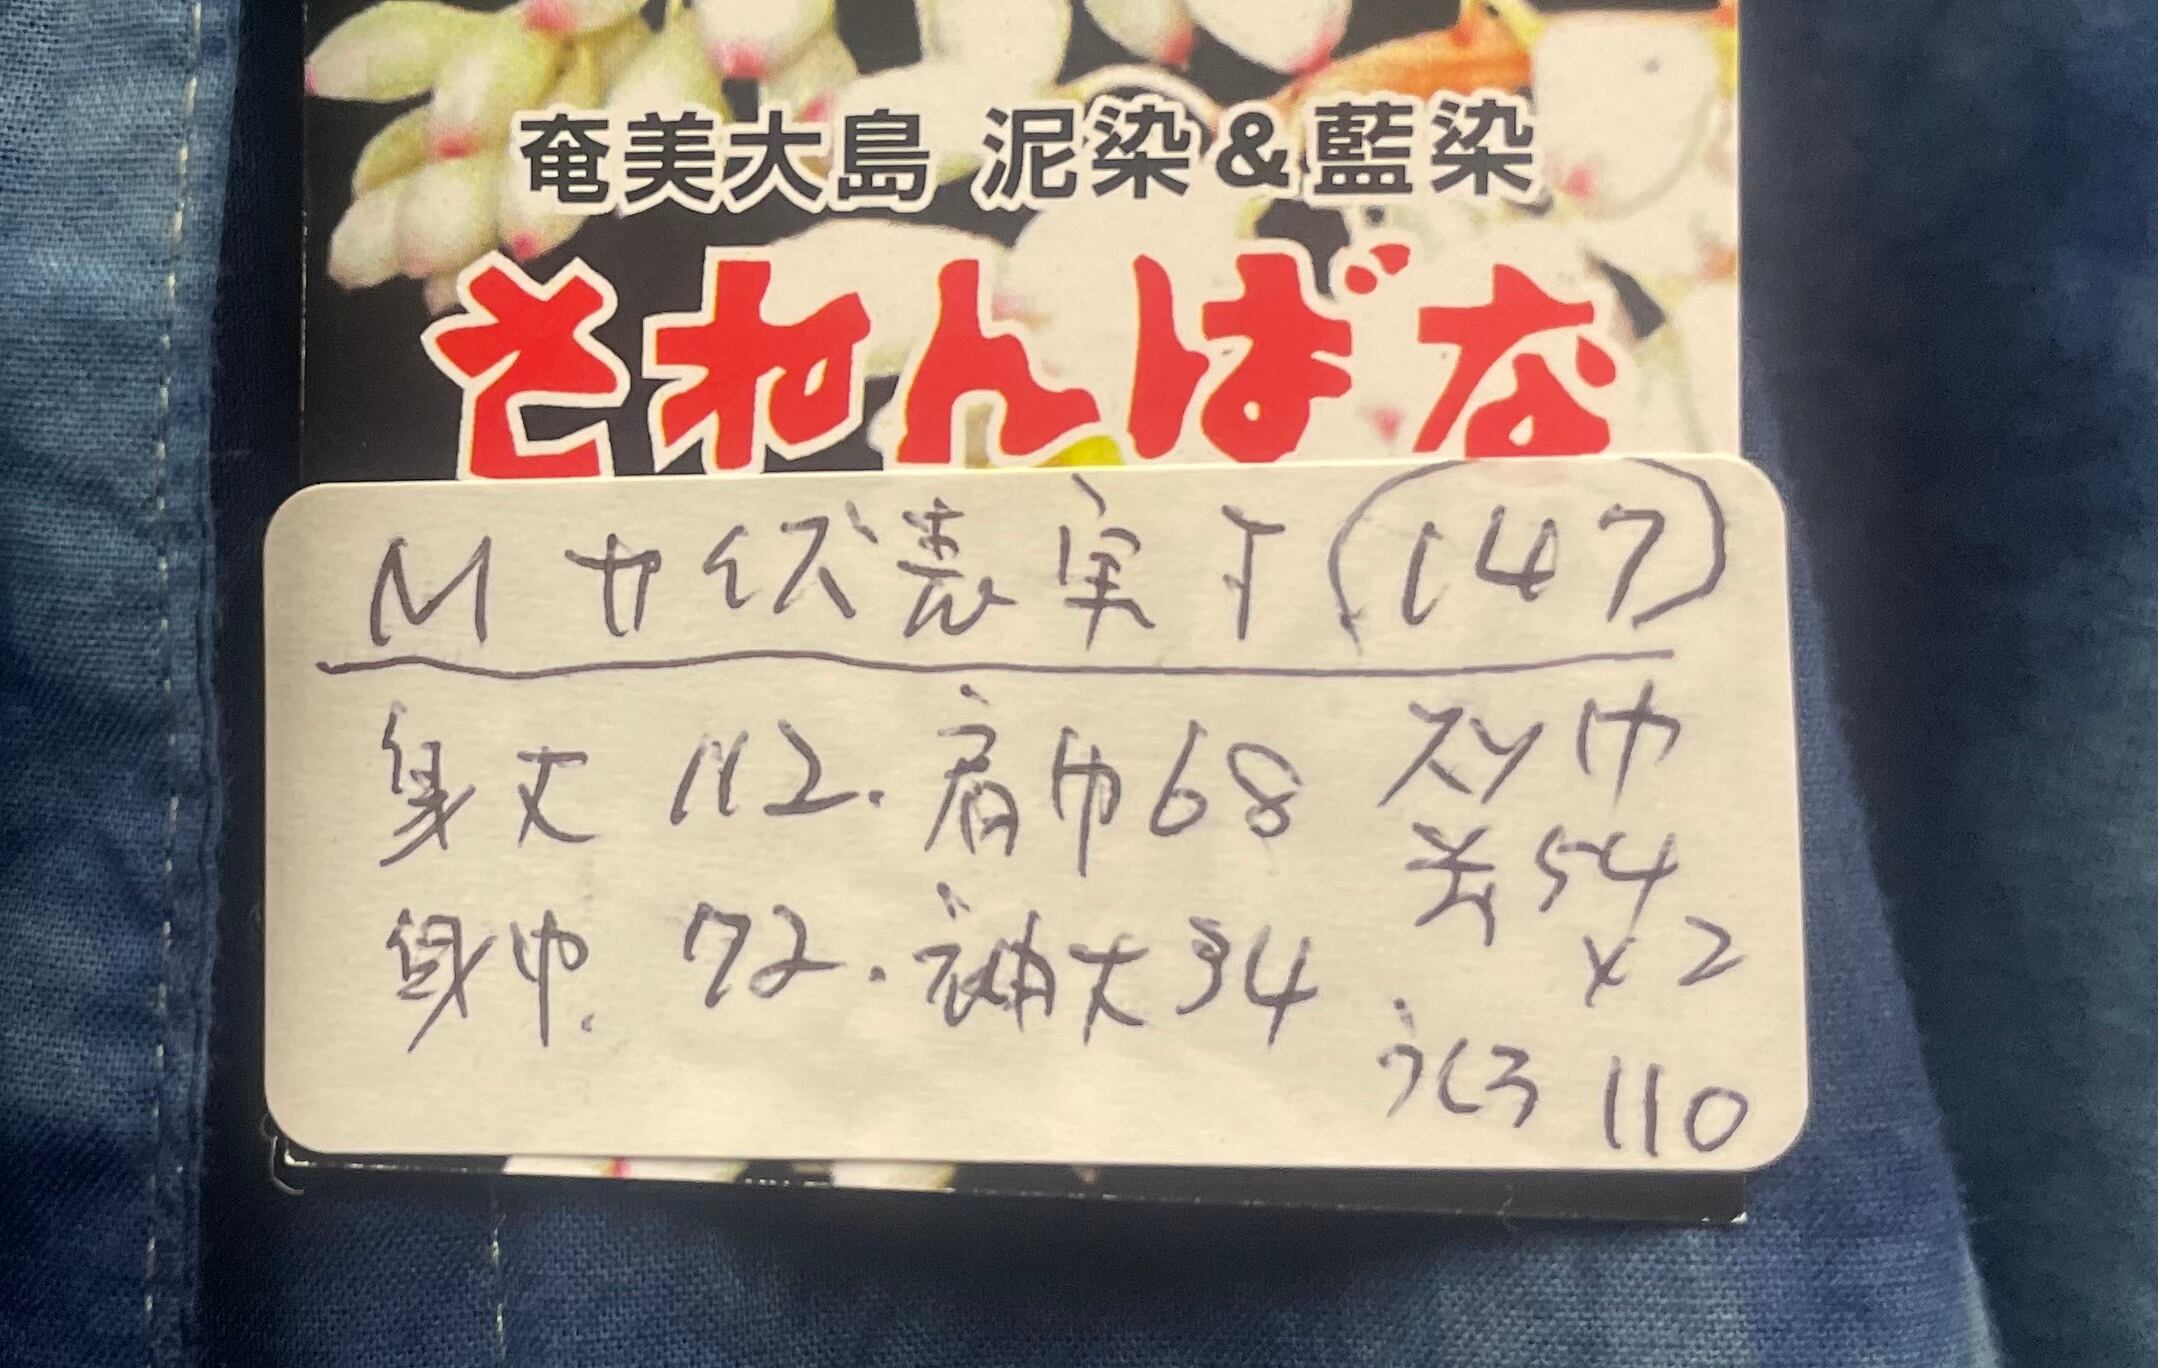 奄美大島 泥染&藍染
されんばな
Mサイズ表実寸(147)
身丈 112.肩巾68
身巾. 72.袖丈34
スソ巾
前54
×2
うしろ 110